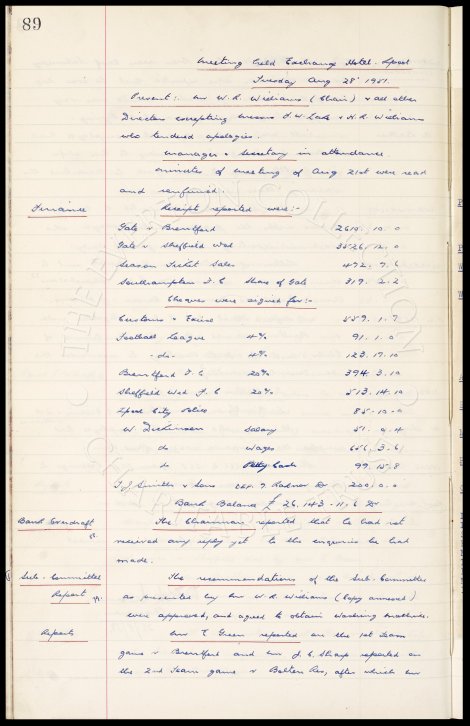 89
Meeting held Exchange Hotel. Lpool
Tuesday Aug 28' 1951.
Present:- Mr W. R. Williams (Chair) & all other
Directors excepting Messrs & H. R. Williams
who tendered apologies.
Manager & Secretary in attendance.
Minutes of meeting of Aug 21st were read
and confirmed.
Finance Receipts reported were:-
Gate v Brentford 2619. 10. 0
Gate v Sheffield Wed 3526. 12. 0
Season Ticket Sales 492. 7. 6
Southampton F. C Share of Gate 319. 2. 2
Cheques were signed for:-
Customs & Excise 559. 1. 7
Football League 4% 91. 1. 0
-do- 4% 123. 17. 10
Brentford F. C 20% 394. 3. 10
Sheffield Wed F. C 20% 513. 14. 10
Lpool City Police 85. 10. 0
W. Dickinson Salary 51. 0. 4
do Wages 656. 3. 6
do Petty Cash 99. 15. 8
& Sons 7 Radnor Dr 200. 0. 0
Bank Balance £ 26. 143 - 11. 6 Dr
Bank Overdraft The Chairman reported that he had not
received any reply yet to the enquiries he had
made.
Sub. Committee The recommendations of the Sub. Committee
Report as presented by Mr W. R. Williams (Copy annexed)
were approved, and agreed to obtain washing machine.
Reports Mr T. Green reported on the 1st Team
game v Brentford and Mr J. C. Sharp reported on
the 2nd Team game v Bolton Res, after which Mr
THE EVERTON COLLECTION
CHARITABLE